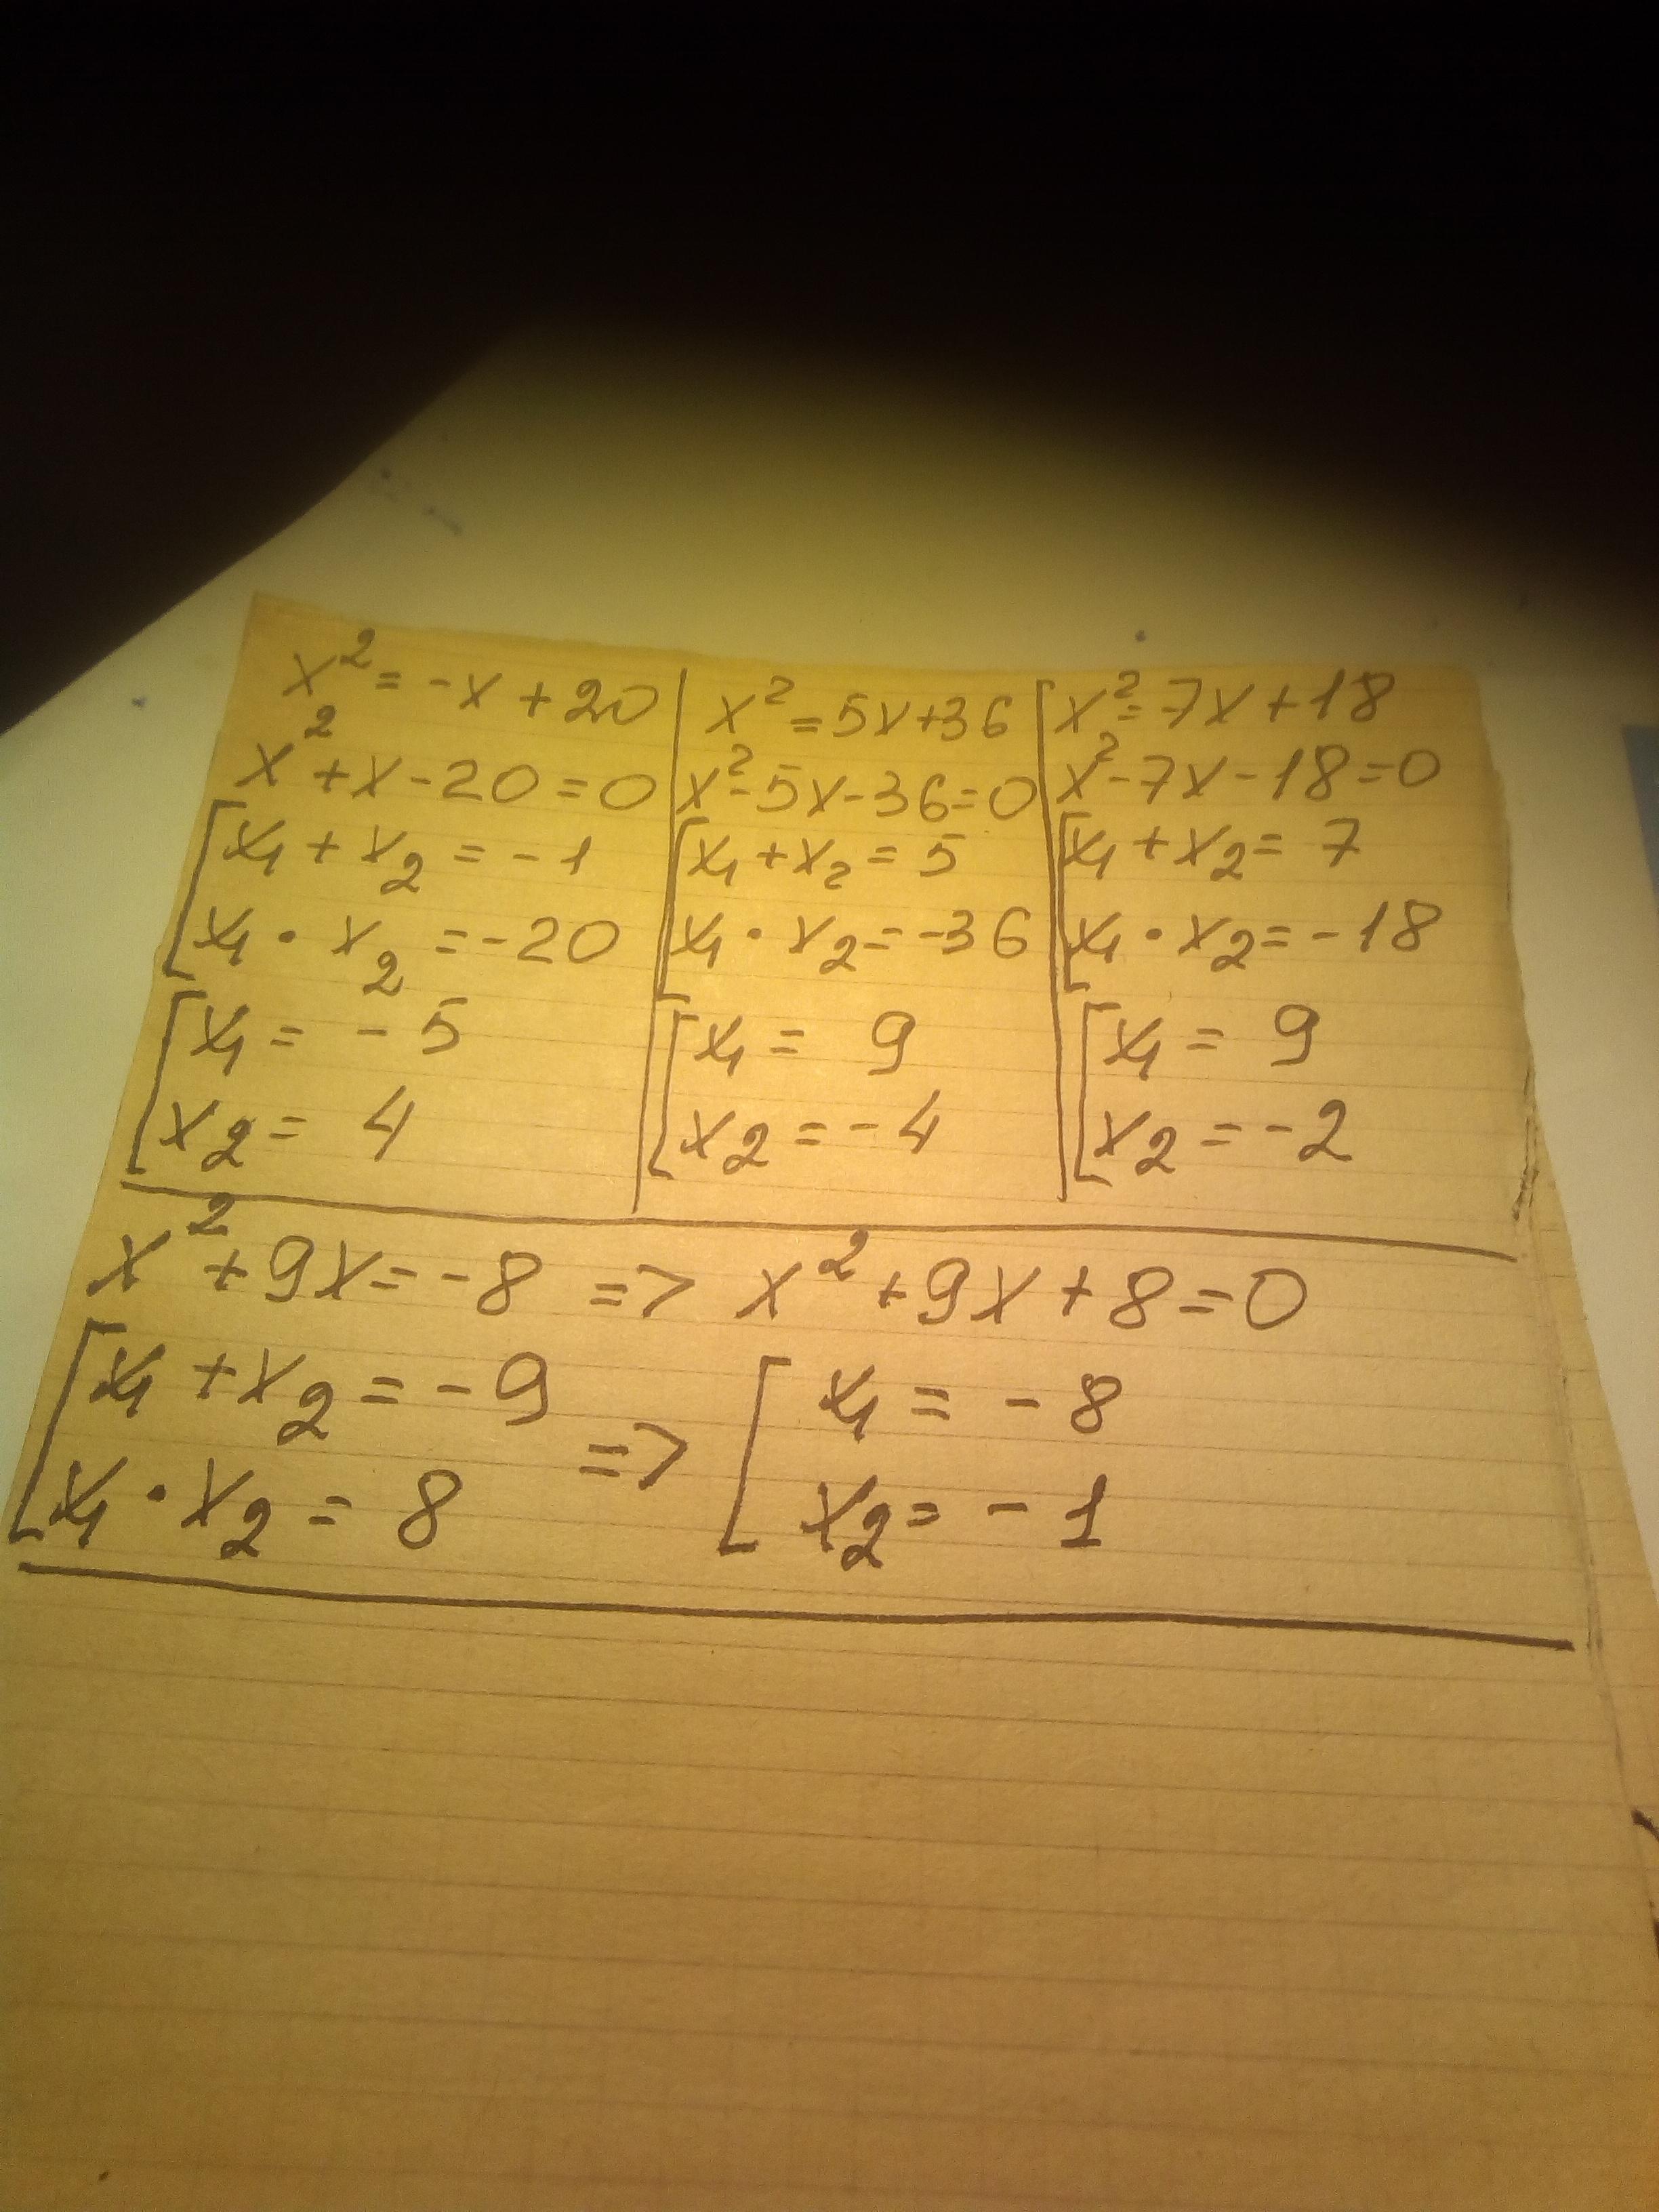 x² = -x + 20
x² + x - 20 = 0
[x₁ + x₂ = -1
[x₁ · x₂ = -20
[x₁ = -5
[x₂ = 4
x² = 5x + 36
x² - 5x - 36 = 0
[x₁ + x₂ = 5
[x₁ · x₂ = -36
[x₁ = 9
[x₂ = -4
x² = 7x + 18
x² - 7x - 18 = 0
[x₁ + x₂ = 7
[x₁ · x₂ = -18
[x₁ = 9
[x₂ = -2
x² + 9x = -8 => x² + 9x + 8 = 0
[x₁ + x₂ = -9
[x₁ · x₂ = 8
=> [x₁ = -8
[x₂ = -1